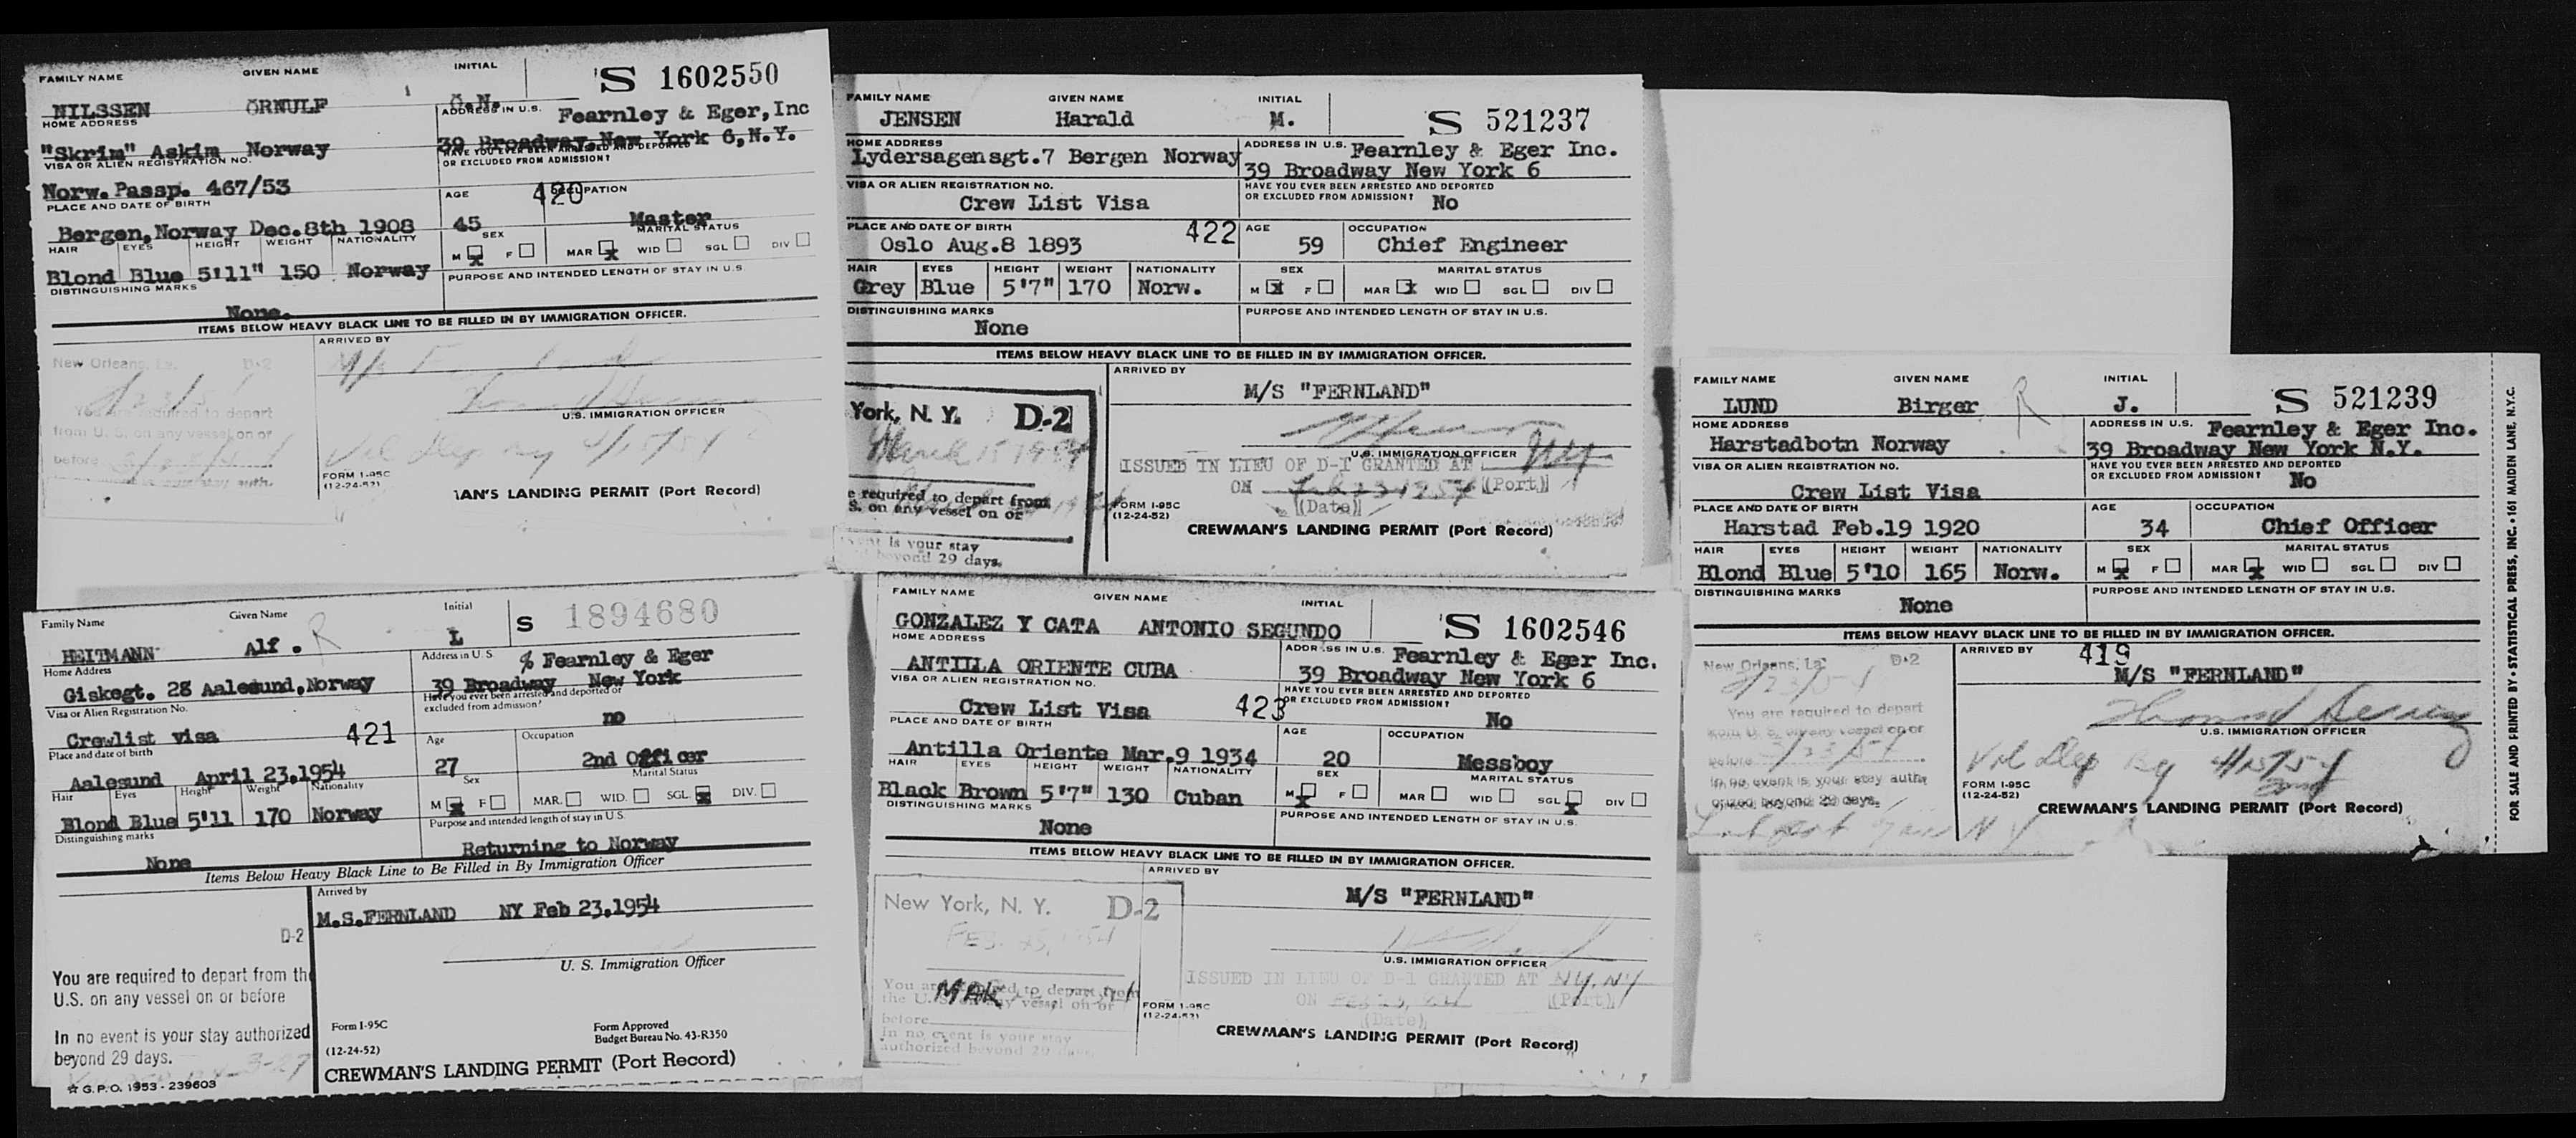 FAMILY NAME GIVEN NAME INITIAL S 1602550
NILSSEN ÖRNULF Ö.N.
HOME ADDRESS ADDRESS IN U.S. Fearnley & Eger, Inc
"Skrim" Askim Norway 39 Broadway, New York 6, N.Y.
VISA OR ALIEN REGISTRATION NO. HAVE YOU EVER BEEN ARRESTED AND DEPORTED OR EXCLUDED FROM ADMISSION?
Norw. Passp. 467/53
PLACE AND DATE OF BIRTH AGE 420 OCCUPATION
Bergen, Norway Dec. 8th 1908 45 Master
HAIR EYES HEIGHT WEIGHT NATIONALITY SEX MARITAL STATUS
M X F MAR X WID SGL DIV
Blond Blue 5'11" 150 Norway PURPOSE AND INTENDED LENGTH OF STAY IN U.S.
DISTINGUISHING MARKS
None.
ITEMS BELOW HEAVY BLACK LINE TO BE FILLED IN BY IMMIGRATION OFFICER.
New Orleans, La. D-2 ARRIVED BY
You are required to depart U.S. IMMIGRATION OFFICER
from U. S. on any vessel on or
before
Vsl Dep NY 4/15/54
FORM I-95C
(12-24-52)
IAN'S LANDING PERMIT (Port Record)
FAMILY NAME GIVEN NAME INITIAL S 521237
JENSEN Harald M.
HOME ADDRESS ADDRESS IN U.S. Fearnley & Eger Inc.
Lydersagensgt.7 Bergen Norway 39 Broadway New York 6
VISA OR ALIEN REGISTRATION NO. HAVE YOU EVER BEEN ARRESTED AND DEPORTED OR EXCLUDED FROM ADMISSION?
Crew List Visa No
PLACE AND DATE OF BIRTH 422 AGE OCCUPATION
Oslo Aug.8 1893 59 Chief Engineer
HAIR EYES HEIGHT WEIGHT NATIONALITY SEX MARITAL STATUS
Grey Blue 5'7" 170 Norw. M X F MAR X WID SGL DIV
DISTINGUISHING MARKS PURPOSE AND INTENDED LENGTH OF STAY IN U.S.
None
ITEMS BELOW HEAVY BLACK LINE TO BE FILLED IN BY IMMIGRATION OFFICER.
ARRIVED BY
M/S "FERNLAND"
York, N. Y. D-2
March 15 1954
U.S. IMMIGRATION OFFICER
ISSUED IN LIEU OF D-1 GRANTED AT NY (Port)
ON Feb 23 1954 (Date)
e required to depart from
S. on any vessel on or
nt is your stay
beyond 29 days.
FORM I-95C
(12-24-52)
CREWMAN'S LANDING PERMIT (Port Record)
FAMILY NAME GIVEN NAME INITIAL S 521239
LUND Birger R J.
HOME ADDRESS ADDRESS IN U.S. Fearnley & Eger Inc.
Harstadbotn Norway 39 Broadway New York N.Y.
VISA OR ALIEN REGISTRATION NO. HAVE YOU EVER BEEN ARRESTED AND DEPORTED OR EXCLUDED FROM ADMISSION?
Crew List Visa No
PLACE AND DATE OF BIRTH AGE OCCUPATION
Harstad Feb.19 1920 34 Chief Officer
HAIR EYES HEIGHT WEIGHT NATIONALITY SEX MARITAL STATUS
Blond Blue 5'10 165 Norw. M X F MAR X WID SGL DIV
DISTINGUISHING MARKS PURPOSE AND INTENDED LENGTH OF STAY IN U.S.
None
ITEMS BELOW HEAVY BLACK LINE TO BE FILLED IN BY IMMIGRATION OFFICER.
New Orleans, La. D-2 ARRIVED BY 419
M/S "FERNLAND"
You are required to depart
from U.S. on any vessel on or
before
U.S. IMMIGRATION OFFICER
In no event is your stay auth-
orized beyond 29 days.
Vsl Dep 4/15/54
FORM I-95C
(12-24-52)
CREWMAN'S LANDING PERMIT (Port Record)
FOR SALE AND PRINTED BY • STATISTICAL PRESS, INC. • 161 MAIDEN LANE, N.Y.C.
Family Name Given Name Initial S 1894680
HEITMANN Alf. R L
Home Address Address in U.S. % Fearnley & Eger
Giskegt. 28 Aalesund, Norway 39 Broadway New York
Visa or Alien Registration No. Have you ever been arrested and deported or excluded from admission?
Crewlist visa 421 no
Place and date of birth Age Occupation
Aalesund April 23,1954 27 2nd Officer
Hair Eyes Height Weight Nationality Sex Marital Status
M X F MAR. WID. SGL X DIV.
Blond Blue 5'11 170 Norway
Distinguishing marks Purpose and intended length of stay in U.S.
None Returning to Norway
Items Below Heavy Black Line to Be Filled in By Immigration Officer
Arrived by
M.S.FERNLAND NY Feb 23,1954
D-2
U. S. Immigration Officer
You are required to depart from the
U.S. on any vessel on or before
In no event is your stay authorized
beyond 29 days.
☆ G.P.O. 1953 - 239603
Form I-95C
(12-24-52)
Form Approved
Budget Bureau No. 43-R350
CREWMAN'S LANDING PERMIT (Port Record)
FAMILY NAME GIVEN NAME INITIAL S 1602546
GONZALEZ Y CATA ANTONIO SEGUNDO
HOME ADDRESS ADDRESS IN U.S. Fearnley & Eger Inc.
ANTILLA ORIENTE CUBA 39 Broadway New York 6
VISA OR ALIEN REGISTRATION NO. HAVE YOU EVER BEEN ARRESTED AND DEPORTED OR EXCLUDED FROM ADMISSION?
Crew List Visa 423 No
PLACE AND DATE OF BIRTH AGE OCCUPATION
Antilla Oriente Mar.9 1934 20 Messboy
HAIR EYES HEIGHT WEIGHT NATIONALITY SEX MARITAL STATUS
Black Brown 5'7" 130 Cuban M X F MAR WID SGL X DIV
DISTINGUISHING MARKS PURPOSE AND INTENDED LENGTH OF STAY IN U.S.
None
ITEMS BELOW HEAVY BLACK LINE TO BE FILLED IN BY IMMIGRATION OFFICER.
ARRIVED BY
M/S "FERNLAND"
New York, N. Y. D-2
FEB 23, 1954
U.S. IMMIGRATION OFFICER
ISSUED IN LIEU OF D-1 GRANTED AT NY, NY (Port)
ON (Date)
You are required to depart from
the U.S. on any vessel on or
before
In no event is your stay
authorized beyond 29 days.
FORM I-95C
(12-24-52)
CREWMAN'S LANDING PERMIT (Port Record)